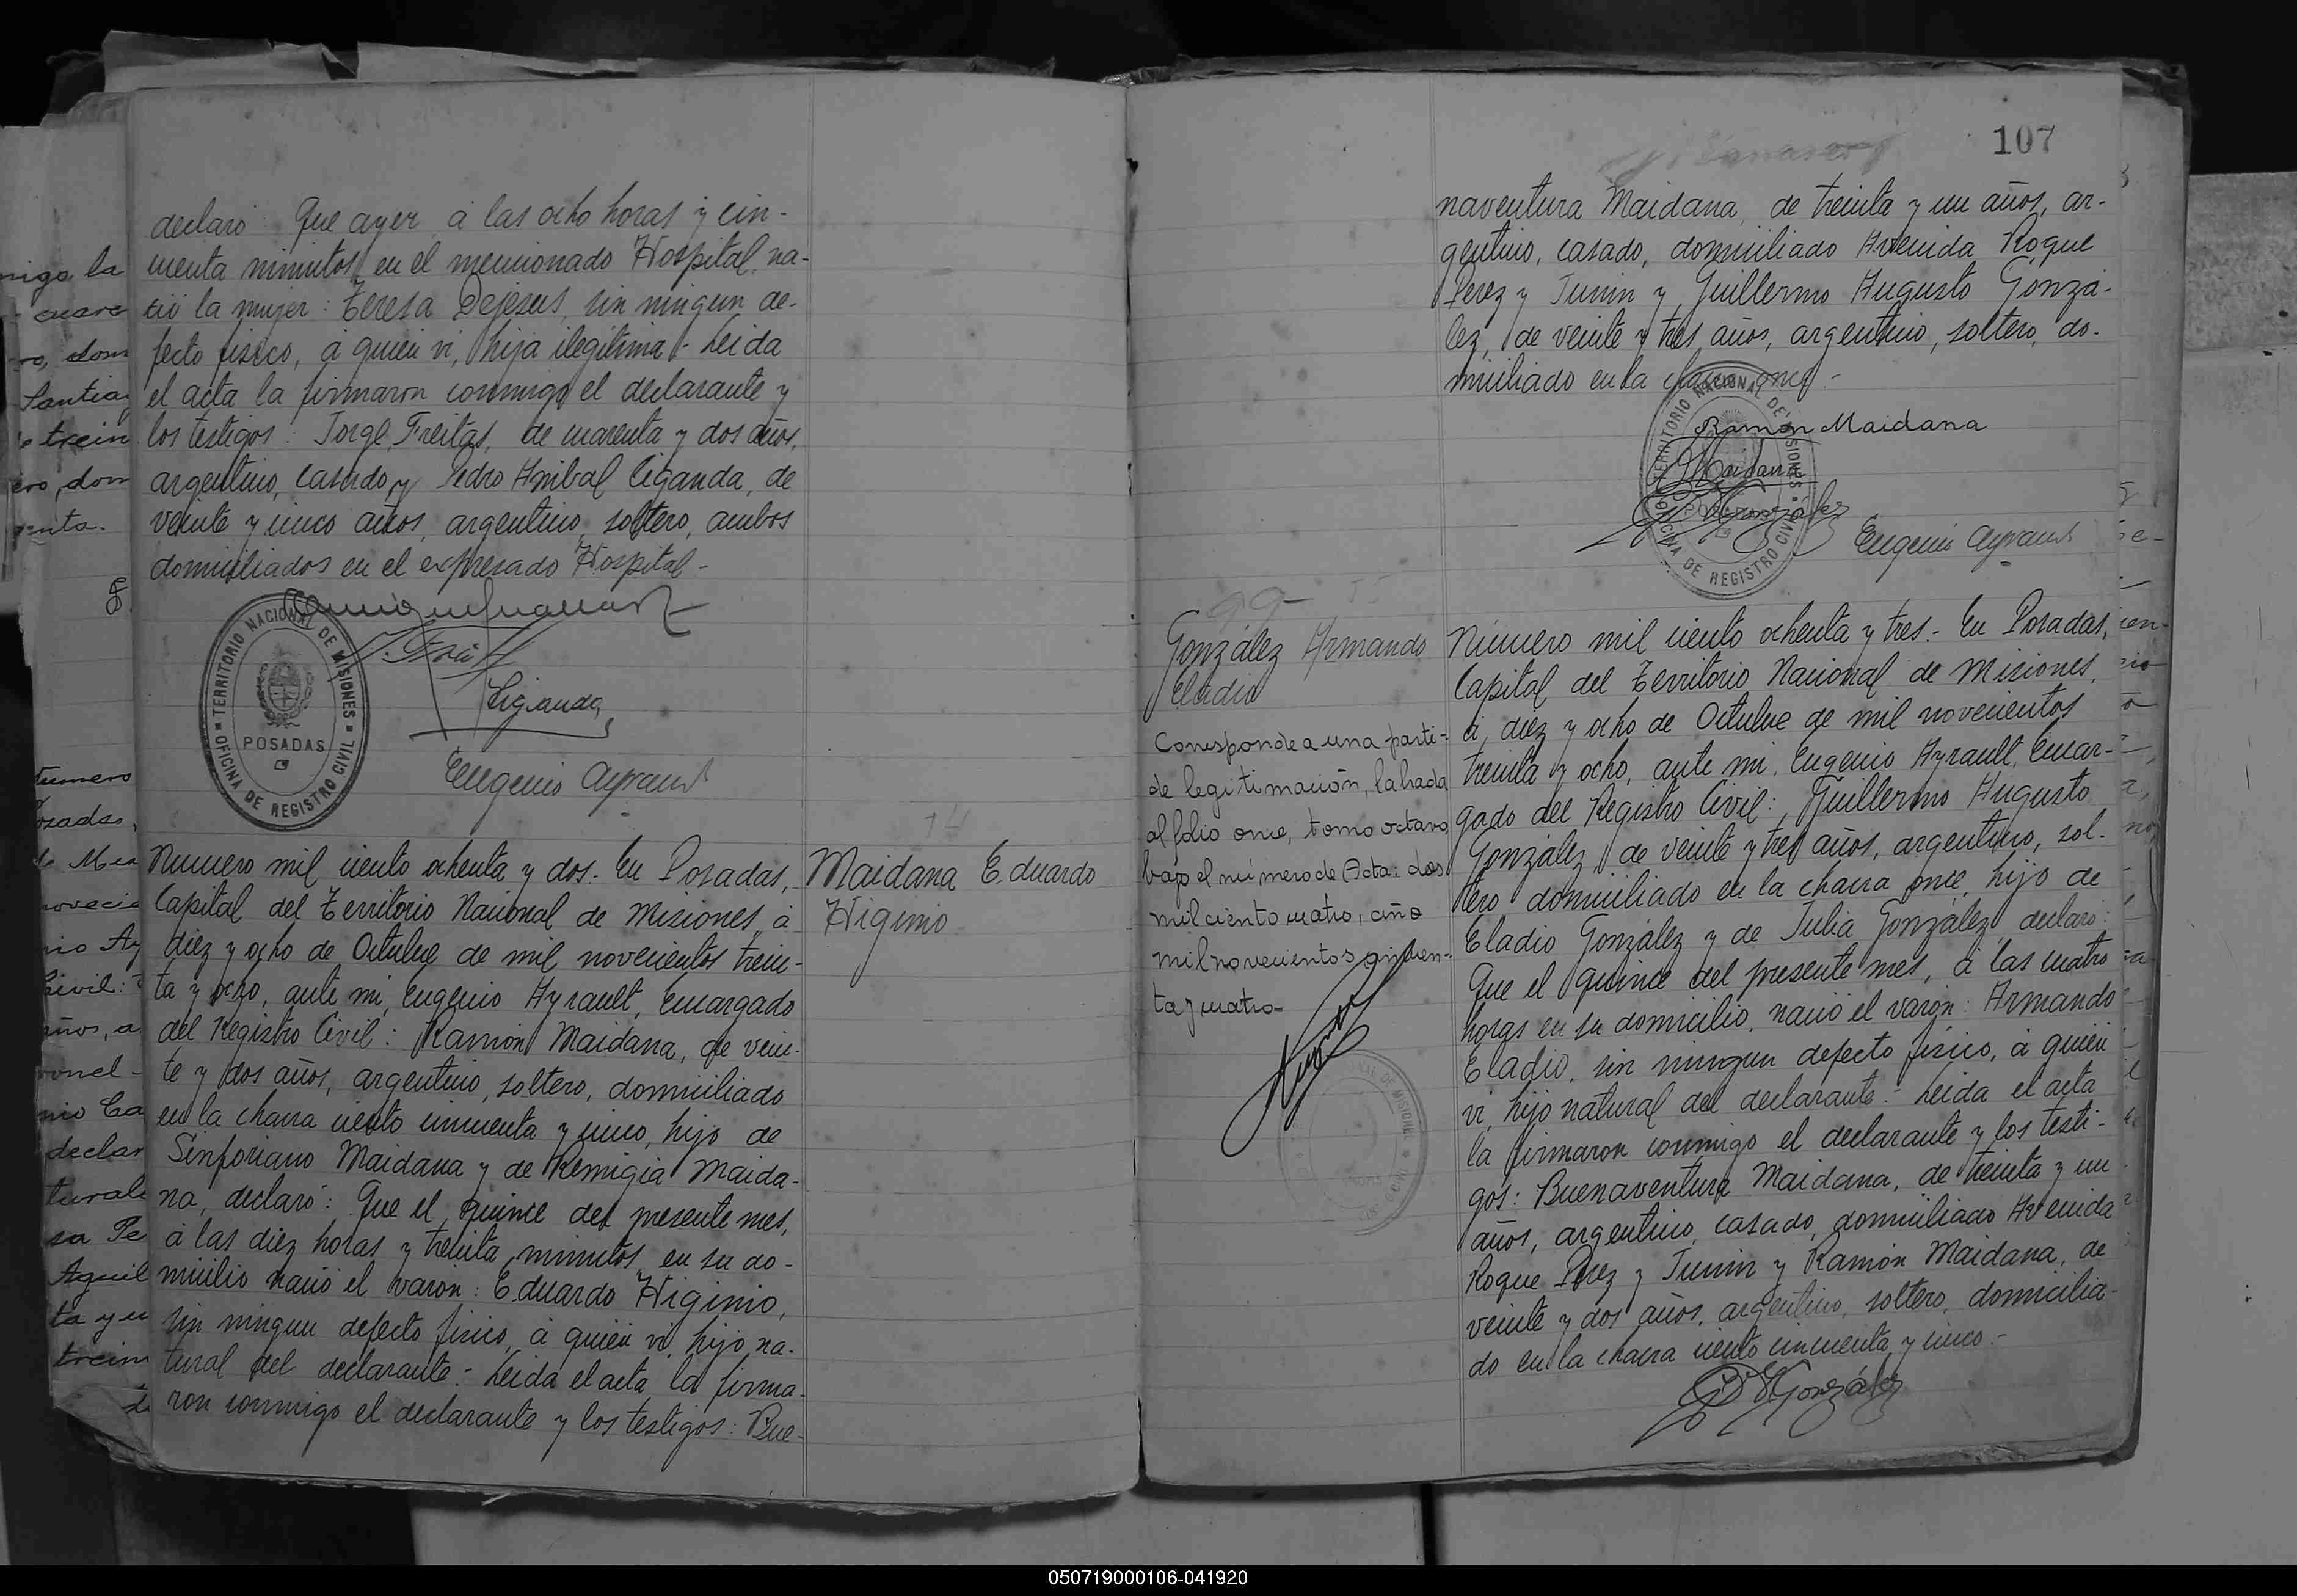 declaró: Que ayer á las ocho horas y cin-
cuenta minutos, en el mencionado Hospital, na-
ció la mujer: Teresa Dejesús, sin ningun de-
fecto fisico, á quien vi, hija ilegítima.- Leida
el acta la firmaron conmigo el declarante y
los testigos: Jorge Freitas, de cuarenta y dos años,
argentino, casado, y Pedro Anibal Ciganda, de
veinte y cinco años, argentino, soltero, ambos
domiciliados en el expresado Hospital.-
TERRITORIO NACIONAL DE MISIONES
POSADAS
OFICINA DE REGISTRO CIVIL
Ciganda
Eugenio Ayrault
Maidana Eduardo
Higinio
Número mil ciento ochenta y dos.- En Posadas,
Capital del Territorio Nacional de Misiones, á
diez y ocho de Octubre de mil novecientos trein-
ta y ocho, ante mi, Eugenio Ayrault, Encargado
del Registro Civil: Ramón Maidana, de vein-
te y dos años, argentino, soltero, domiciliado
en la chacra ciento cincuenta y cinco, hijo de
Sinforiano Maidana y de Remigia Maida-
na, declaró: Que el quince del presente mes,
á las diez horas y treinta minutos, en su do-
micilio nació el varón: Eduardo Higinio,
sin ningun defecto fisico, á quien vi, hijo na-
tural del declarante.- Leida el acta la firma-
ron conmigo el declarante y los testigos: Bue-
107
naventura Maidana, de treinta y un años, ar-
gentino, casado, domiciliado Avenida Roque
Perez y Junin y Guillermo Augusto Gonzá-
lez, de veinte y tres años, argentino, soltero, do-
miciliado en la chacra once.-
Ramón Maidana
Maidana
González
Eugenio Ayrault
TERRITORIO NACIONAL DE MISIONES
POSADAS
OFICINA DE REGISTRO CIVIL
González Armando
Eladio
Corresponde a una parti-
de legitimación, labrada
al folio once, tomo octavo
bajo el número de Acta: dos
mil ciento cuatro, año
mil novecientos cincuen-
ta y cuatro-
Número mil ciento ochenta y tres.- En Posadas,
Capital del Territorio Nacional de Misiones,
á, diez y ocho de Octubre de mil novecientos
treinta y ocho, ante mi, Eugenio Ayrault, Encar-
gado del Registro Civil: Guillermo Augusto
González, de veinte y tres años, argentino, sol-
tero domiciliado en la chacra once, hijo de
Eladio González y de Julia González, declaró:
Que el quince del presente mes, á las cuatro
horas en su domicilio, nació el varón: Armando
Eladio, sin ningun defecto fisico, á quien
vi, hijo natural del declarante.- Leida el acta
la firmaron conmigo el declarante y los testi-
gos: Buenaventura Maidana, de treinta y un
años, argentino, casado, domiciliado Avenida
Roque Perez y Junin y Ramón Maidana, de
veinte y dos años, argentino, soltero, domicilia-
do en la chacra ciento cincuenta y cinco.-
González
050719000106-041920